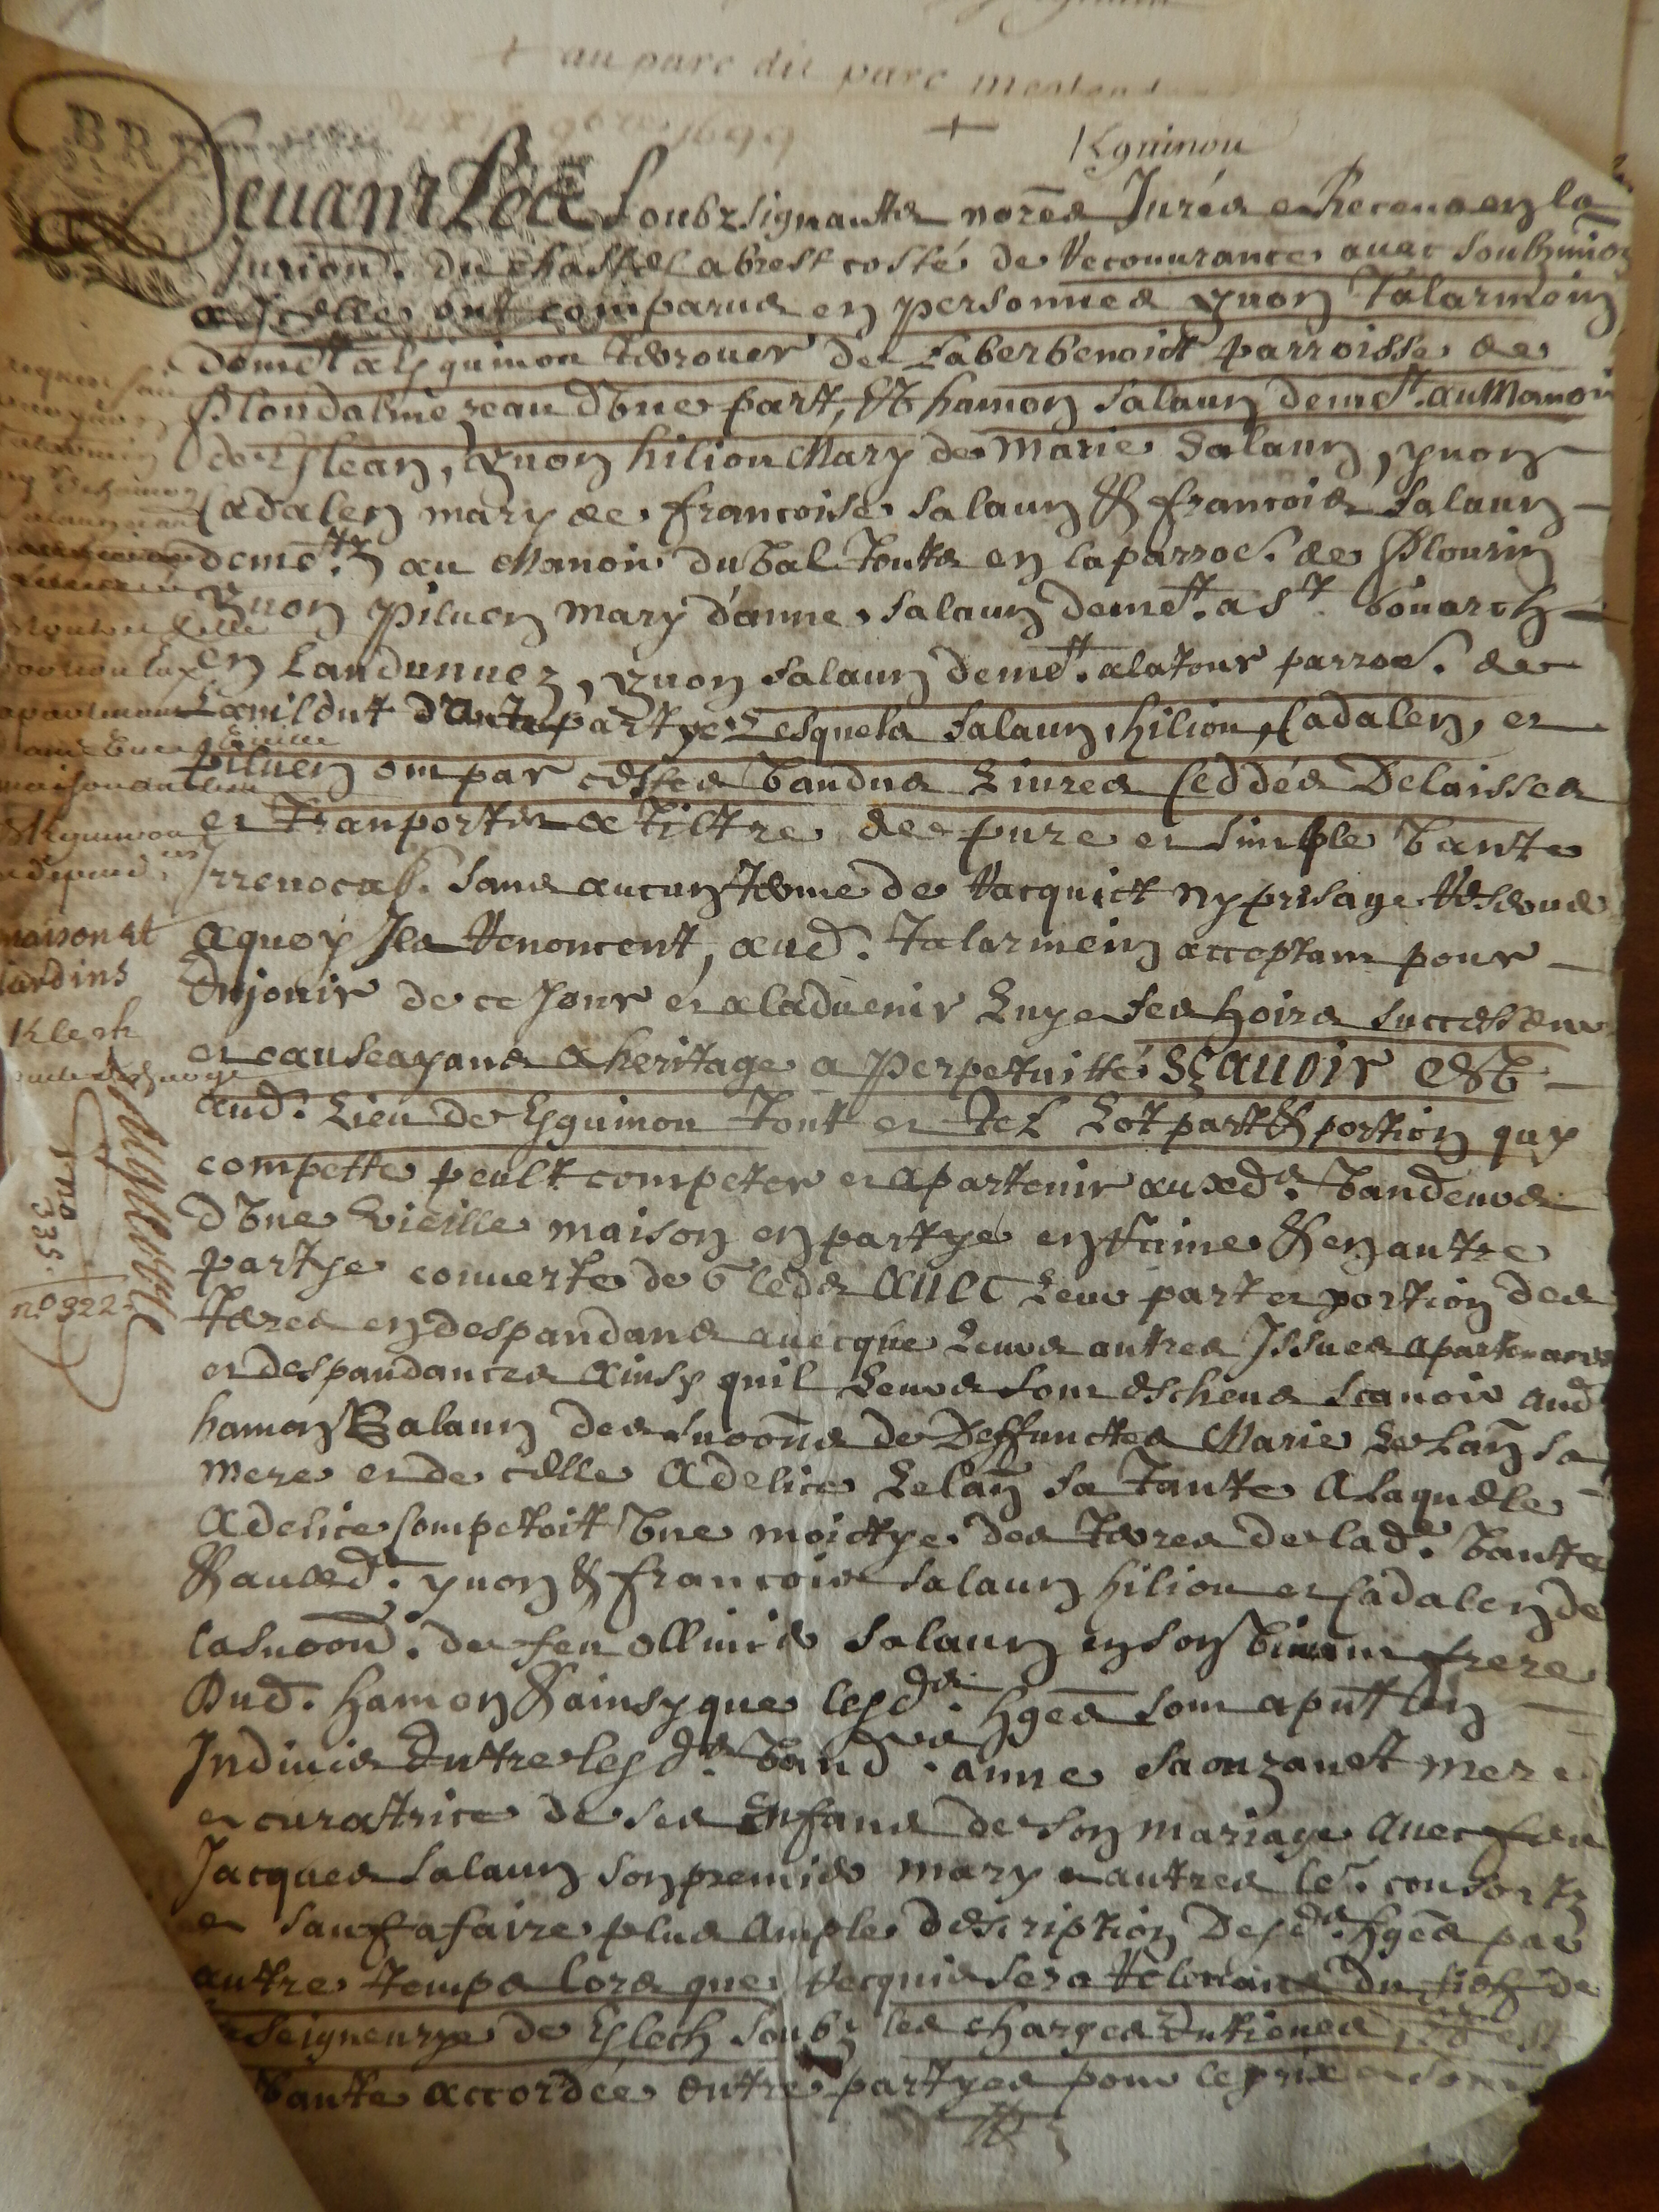 + au parc dit parc
1699
+
Kguinou
BRE
Devant Les Soubzsignants nores Jurés et Receus en la
Jurion. du chastel a brest costé de Recouvrance avec soubmion
a Icelle ont comparus en personnes yvon Talarmein
demet. a Kguinou tterouer de Laberbenoict parroisse de
Ploudalmezeau d'Une part, Et hamon Salaun demet. au Manoir
de Kslean, yvon hiliou Mary de Marie Salaun, yvon
Cadalen mary de francoise Salaun & francois Salaun
demetz. au Manoir du Val touts en la parroe. de Plourin
yvon Piluen mary d'anne Salaun demet. a St. Gouarch
en Landunuez, yvon Salaun demet. a la tour parroe. de
Lanildut d'Autre partye Lesquels Salaun, hiliou, Cadalen, et
Piluen ont par cestes Vandus Livres Ceddés Delaissés
et tranportés a tiltre de pure et simple Vante
Irrevocab. sans aucun terme de Racquict ny prisage Reservé
a quoy Ils Renoncent, aud. Talarmein acceptant pour
En jouir de ce Jour et a ladvenir Luy et ses hoirs successeurs
et causeayans a heritage a Perpetuitté SÇAUOIR Est
aud. Lieu de Kguinou tout et tel Lot part & portion quy
compette peult competer et apartenir auxds. Vandeurs
d'Une vieille maison en partye en Ruine & en autre
partye couverte de Gleds AUEC Leur part et portion des
terres en despandans avecque Leurs autres Issues apartenances
et despandances Ainsy quil Leurs sont escheus scavoir aud
hamon Salaun des suoons de Deffunctes Marie Le Lan sa
Mere et de celle Adelice Le Lan sa tante A Laquelle
Adelice Competoitt Une moictye des terres de lad. Vante
& auxd. yvon & francois Salaun hiliou et Cadalen de
la suoon. de feu ollivier Salaun en son Vivant frere
Dud. hamon & ainsy que lesds. hges sont a pntt en
Indivis Entre lesds. Vand. anne Saouzanet mere
et curattrice de ses Enfans de son mariage Avec feu
Jacques Salaun son premier mary et autres les. consortz
et sauf a faire plus Ample description Desds. hges par
autre temps lors que Requis sera du fief de
Seigneurye de Klech soubz les charges Entienes, Et est
Vante accordée Entre partyes pour le prix et somme
maison et
jardins
Klech
335.
no 322